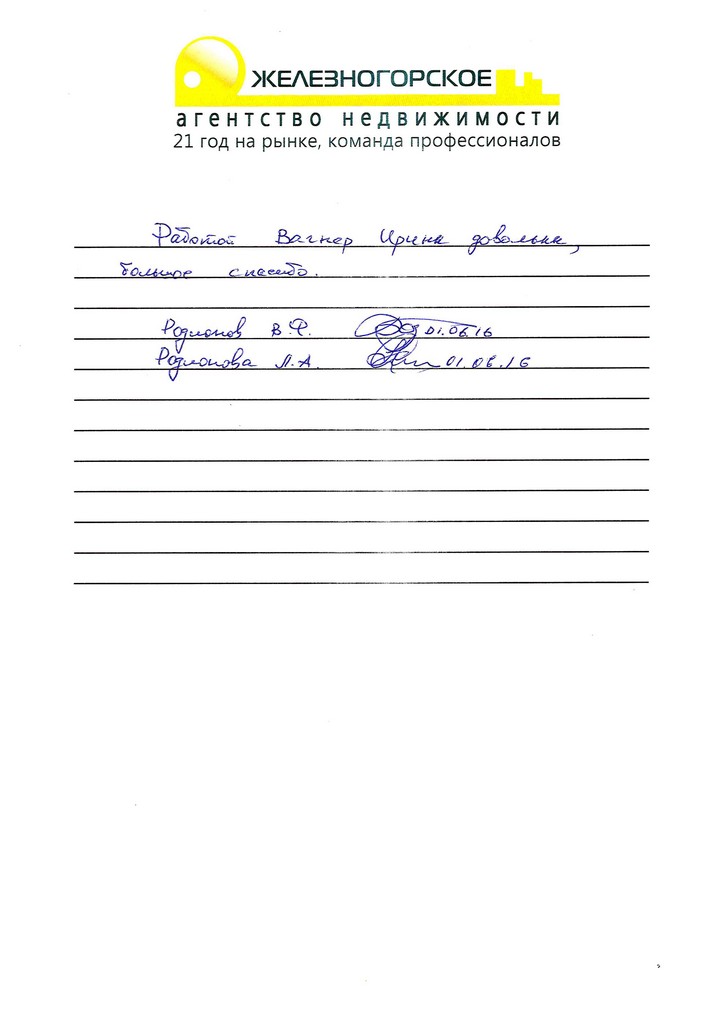 ЖЕЛЕЗНОГОРСКОЕ
агентство недвижимости
21 год на рынке, команда профессионалов
Работой Вагнер Ирина довольна,
большое спасибо.
Родионов В.Ф. 01.06.16
Родионова Л.А. 01.06.16